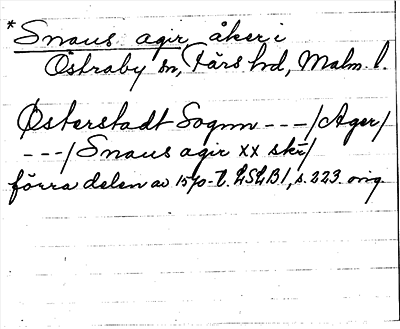 * Snaus agir, åker i
Östraby sn, Färs hd, Malm. l.
Østerstadt Sognn --- / Ager /
--- / Snaus agir xx skr /
förra delen av 1570-t. LSLB1, s. 223. orig.